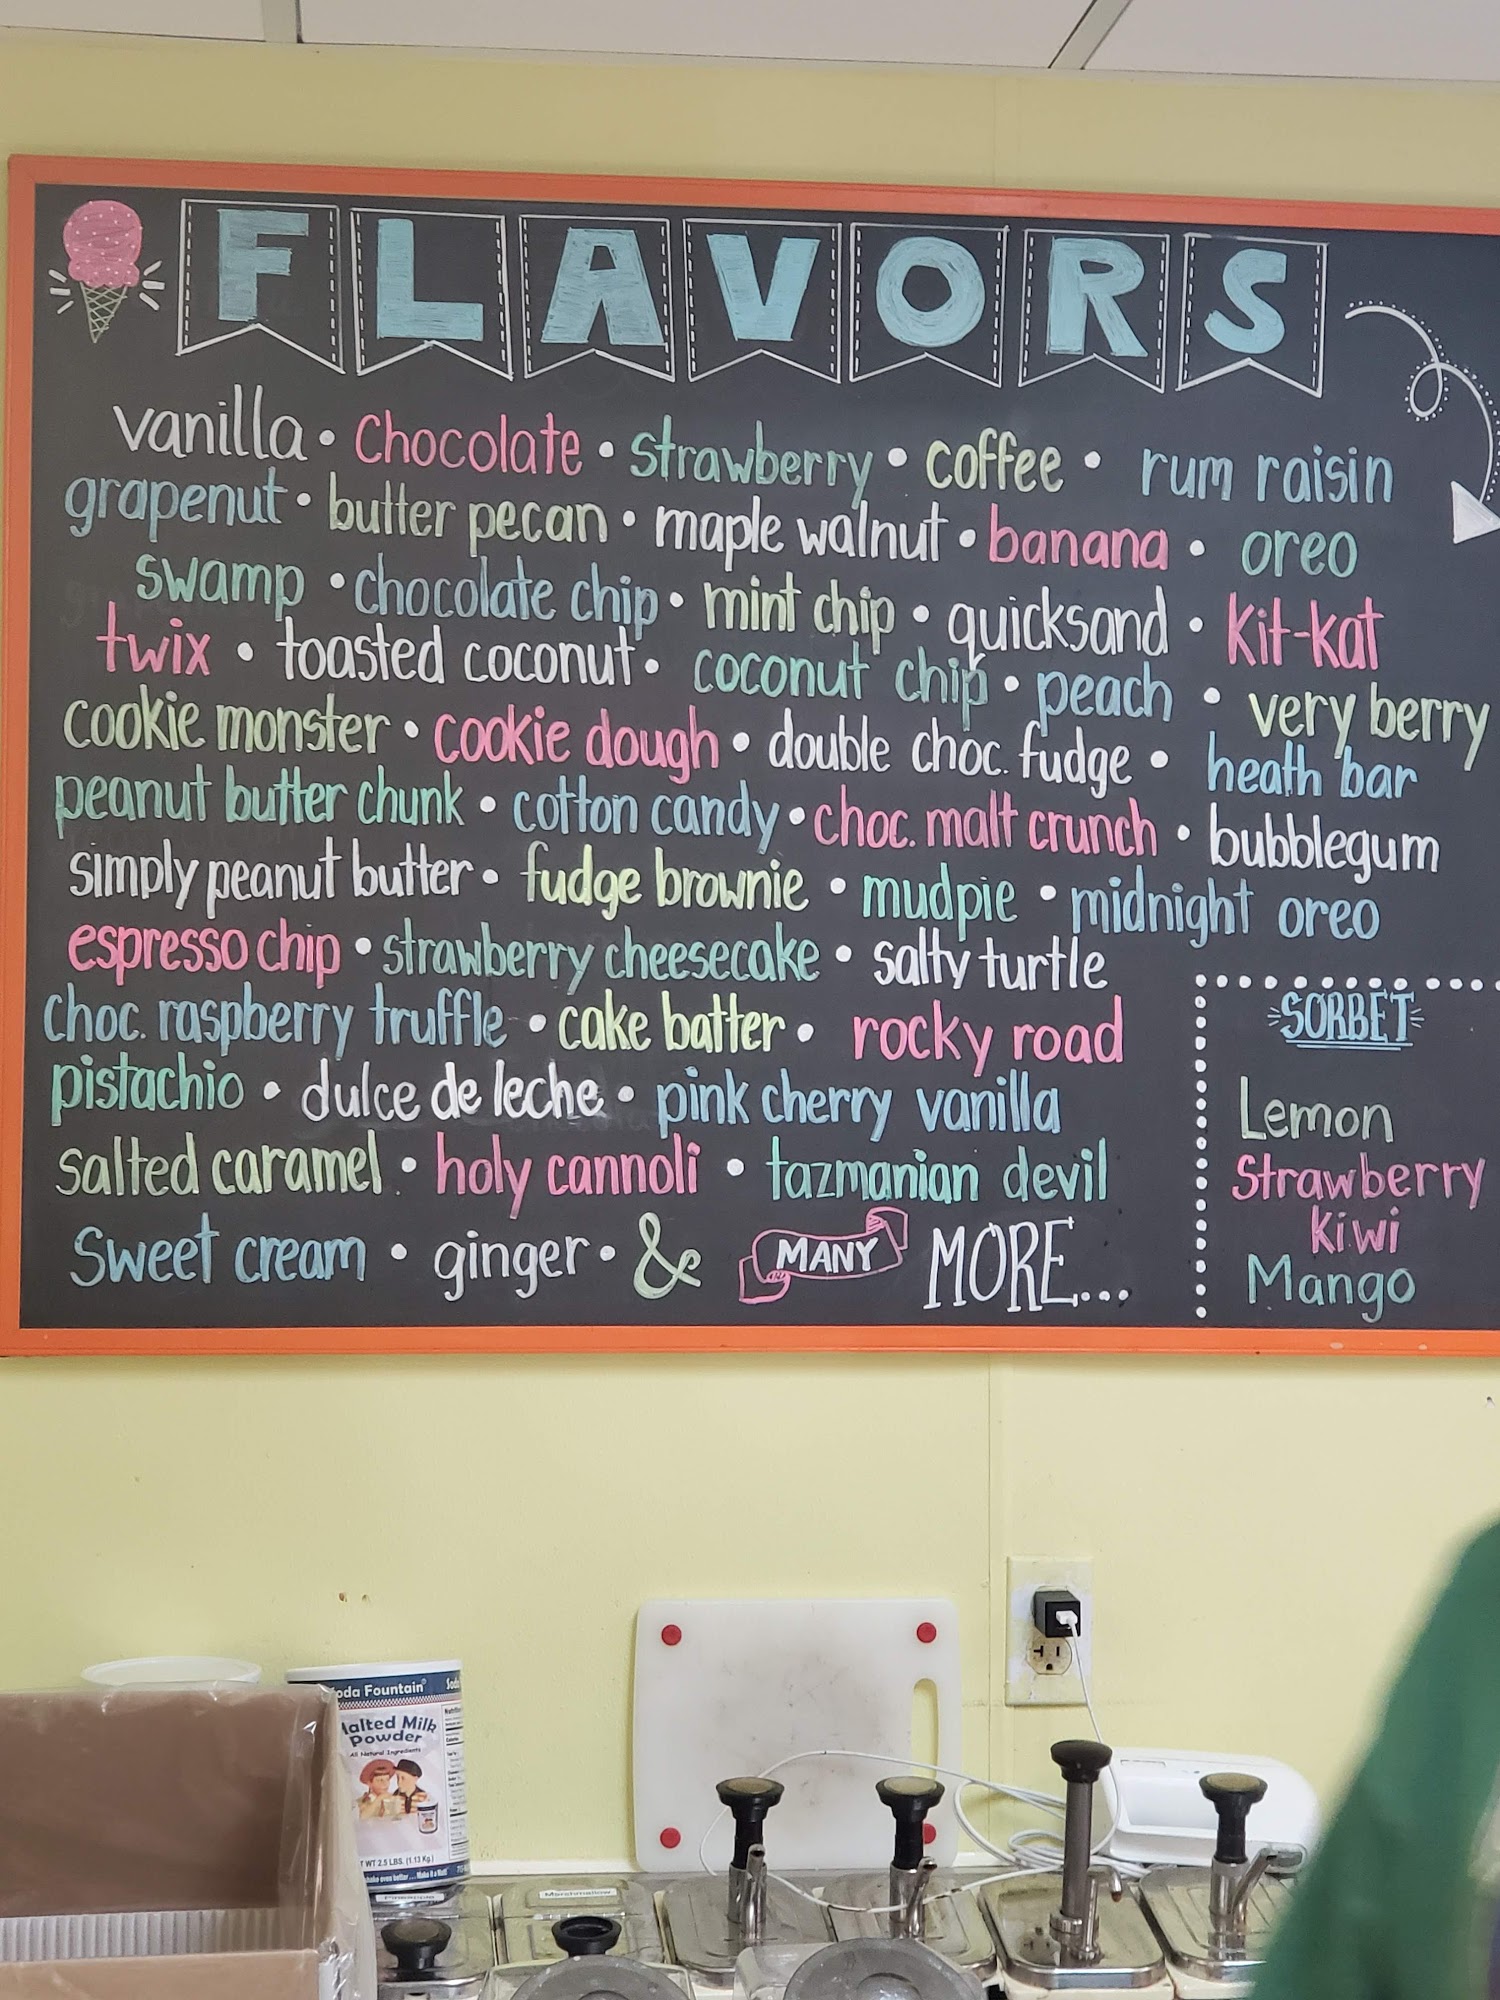 FLAVORS
vanilla • Chocolate • strawberry • coffee • rum raisin
grapenut • butter pecan • maple walnut • banana • oreo
swamp • chocolate chip • mint chip • quicksand • Kit-kat
twix • toasted coconut • coconut chip • peach • very berry
cookie monster • cookie dough • double choc. fudge • heath bar
peanut butter chunk • cotton candy • choc. malt crunch • bubblegum
simply peanut butter • fudge brownie • mudpie • midnight oreo
espresso chip • strawberry cheesecake • salty turtle
choc. raspberry truffle • cake batter • rocky road
pistachio • dulce de leche • pink cherry vanilla
salted caramel • holy cannoli • tazmanian devil
Sweet cream • ginger • & MANY MORE...
SORBET
Lemon
Strawberry
Kiwi
Mango
oda Fountain
Malted Milk
Powder
All Natural Ingredients
T WT 2.5 LBS. (1.13 Kg.)
Marshmallow